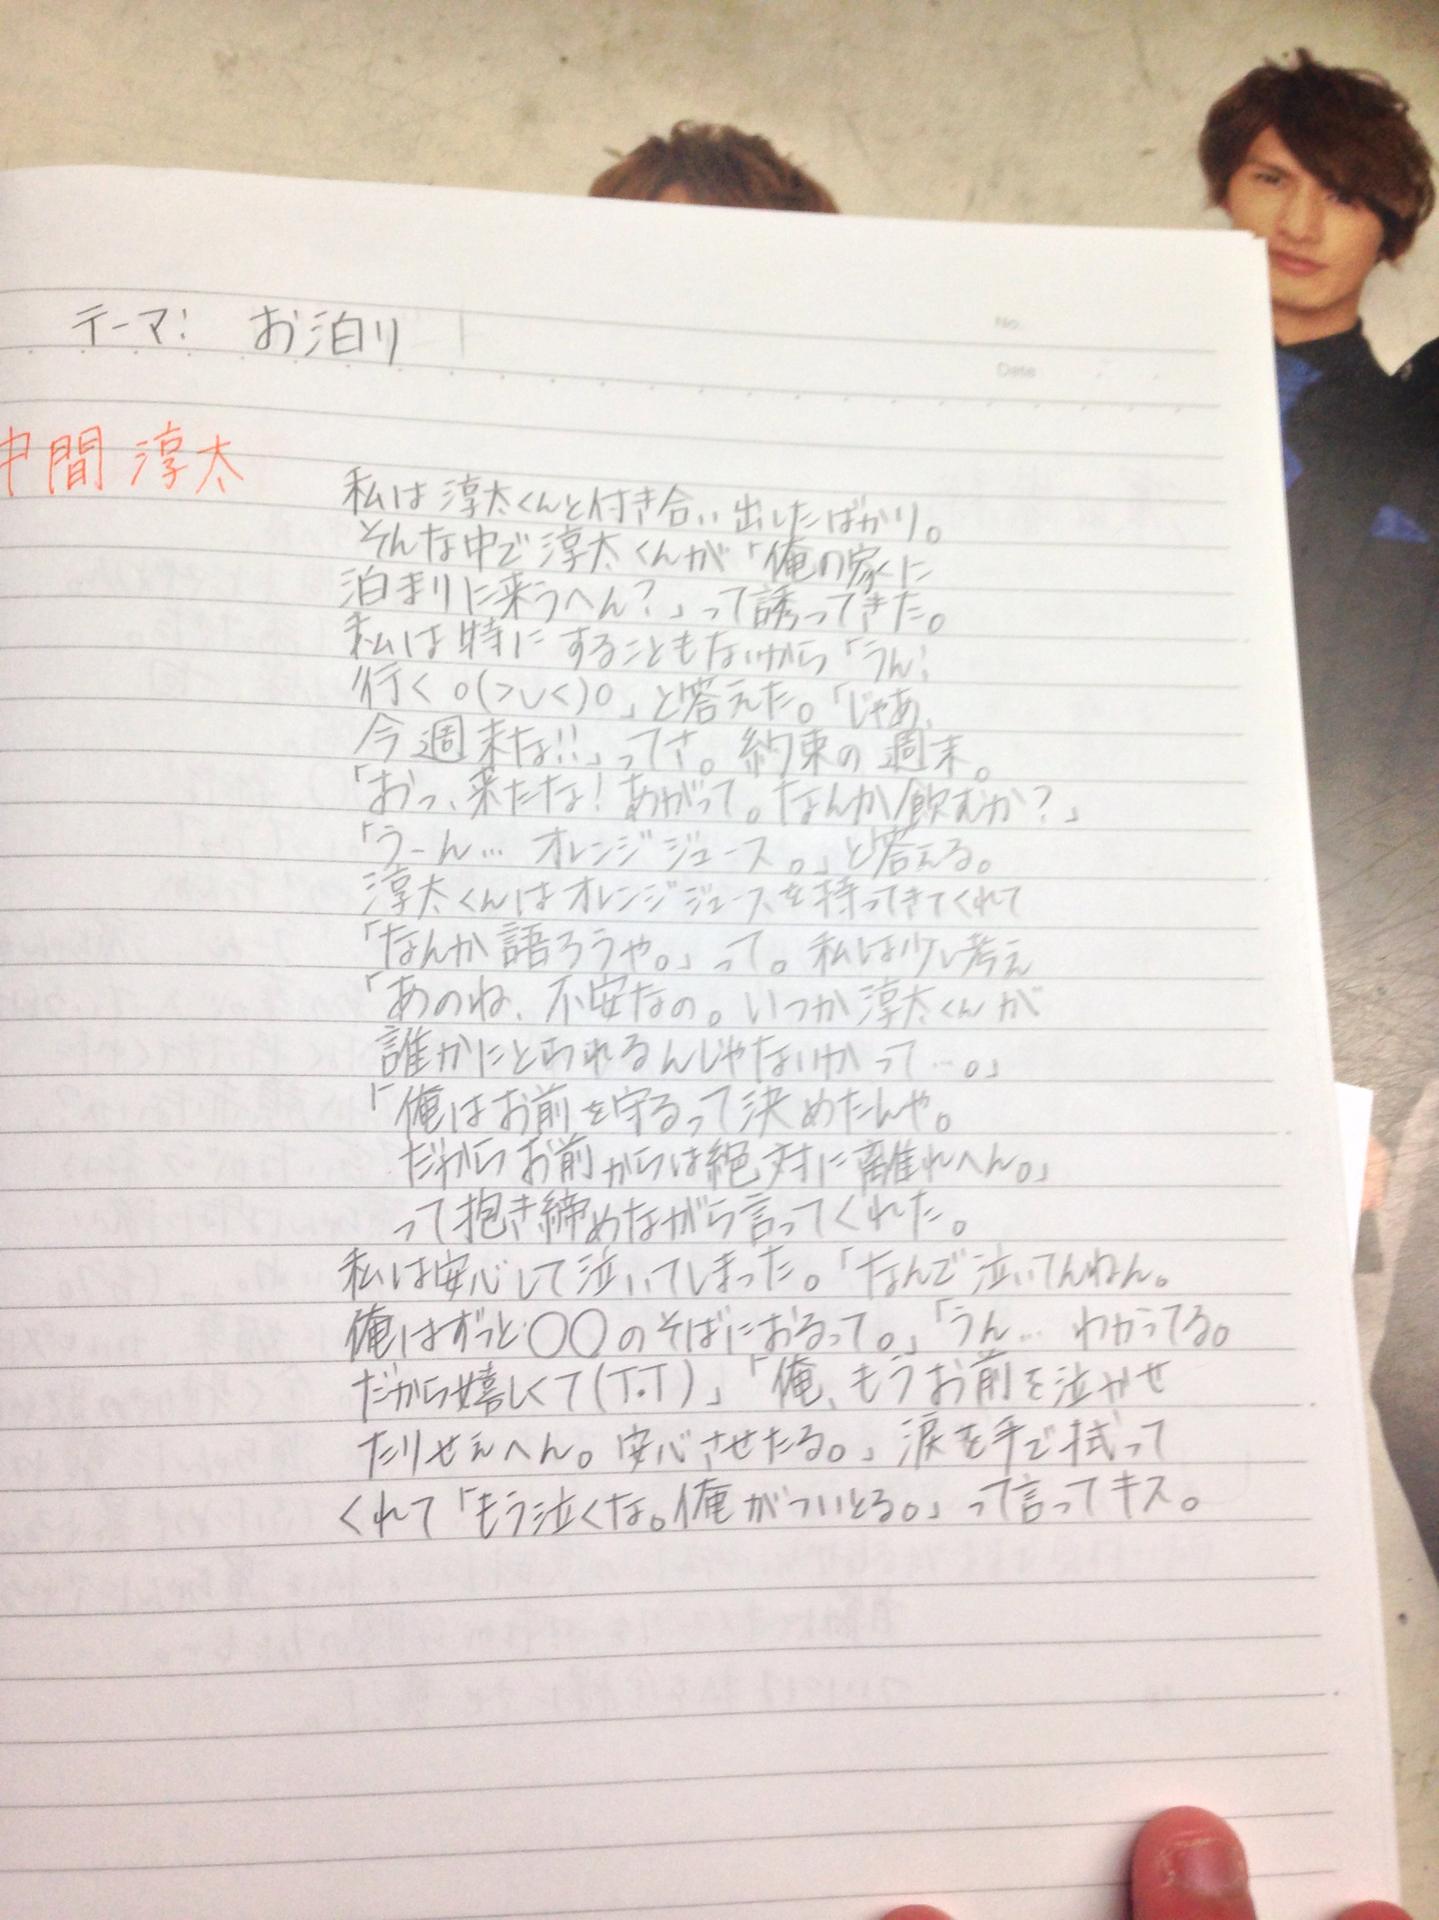 テーマ： お泊り
No.
Date
中間 淳太
私は淳太くんと付き合い出したばかり。
そんな中で淳太くんが「俺の家に
泊まりに来うへん？」って誘ってきた。
私は特にすることもないから「うん！
行く o(>∪<)o」と答えた。「じゃあ、
今週末な!!」ってさ。約束の週末。
「おっ、来たな！あがって。なんか飲むか？」
「うーん… オレンジジュース。」と答える。
淳太くんはオレンジジュースを持ってきてくれて
「なんか語ろうや。」って。私は少し考え
「あのね、不安なの。いつか淳太くんが
誰かにとられるんじゃないかって…。」
「俺はお前を守るって決めたんや。
だからお前からは絶対に離れへん。」
って抱き締めながら言ってくれた。
私は安心して泣いてしまった。「なんで泣いてんねん。
俺はずっと〇〇のそばにおるって。」「うん… わかってる。
だから嬉しくて(T.T)」「俺、もうお前を泣かせ
たりせぇへん。安心させたる。」涙を手で拭って
くれて「もう泣くな。俺がついとる。」って言ってキス。